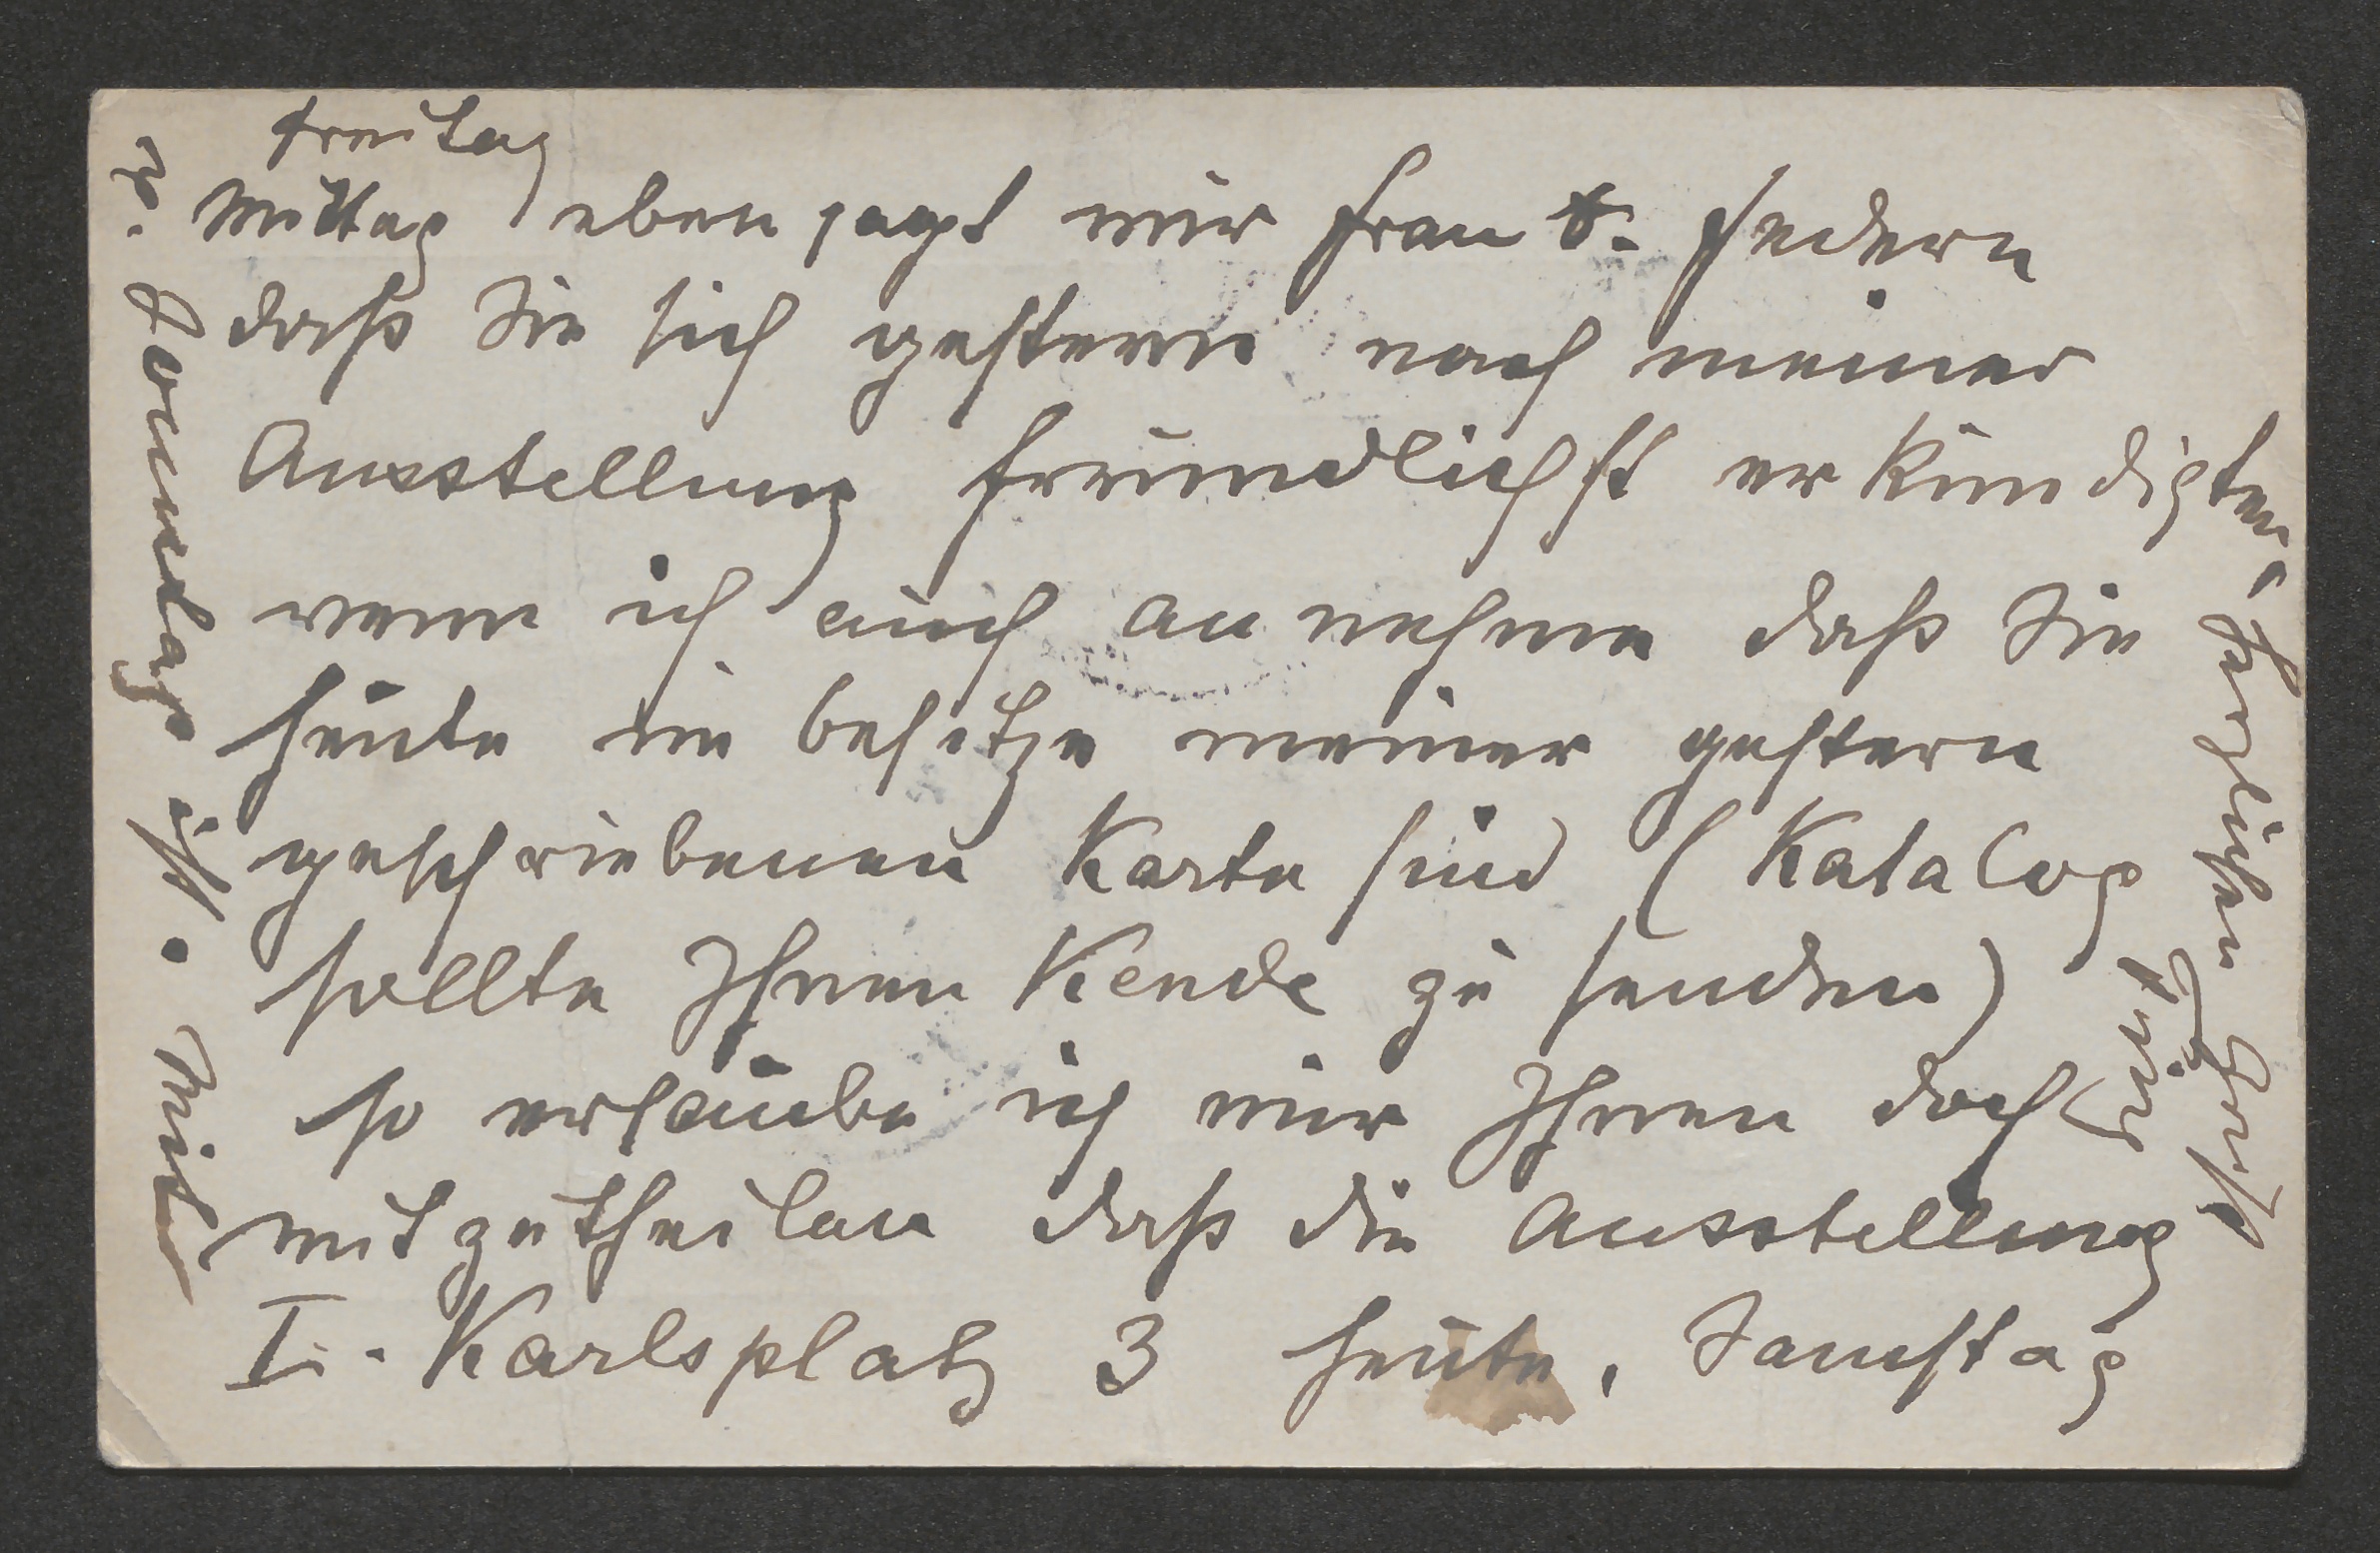 Freitag
Mittag eben sagt mir Frau v. Federn
daß Sie sich gestern nach meiner
Ausstellung freundlichst erkundigten.
wenn ich auch annehme daß Sie
heute im besitze meiner gestern
geschriebenen Karte sind (Katalog
sollte Ihnen Kende zu senden)
so erlaube ich mir Ihnen doch
mitzutheilen daß die Ausstellung
I. Karlsplatz 3 heute, Samstag
u. Sonntag ist. Mit
herzlichen Gruß